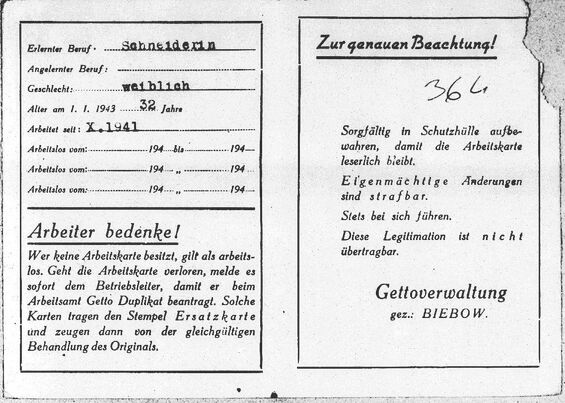 Erlernter Beruf: Schneiderin
Angelernter Beruf:
Geschlecht: weiblich
Alter am 1. 1. 1943 32 Jahre
Arbeitet seit: X.1941
Arbeitslos vom: 194 bis 194
Arbeitslos vom: 194 „ 194
Arbeitslos vom: 194 „ 194
Arbeiter bedenke!
Wer keine Arbeitskarte besitzt, gilt als arbeits-
los. Geht die Arbeitskarte verloren, melde es
sofort dem Betriebsleiter, damit er beim
Arbeitsamt Getto Duplikat beantragt. Solche
Karten tragen den Stempel Ersatzkarte
und zeugen dann von der gleichgültigen
Behandlung des Originals.
Zur genauen Beachtung!
364
Sorgfältig in Schutzhülle aufbe-
wahren, damit die Arbeitskarte
leserlich bleibt.
Eigenmächtige Änderungen
sind strafbar.
Stets bei sich führen.
Diese Legitimation ist nicht
übertragbar.
Gettoverwaltung
gez.: BIEBOW.